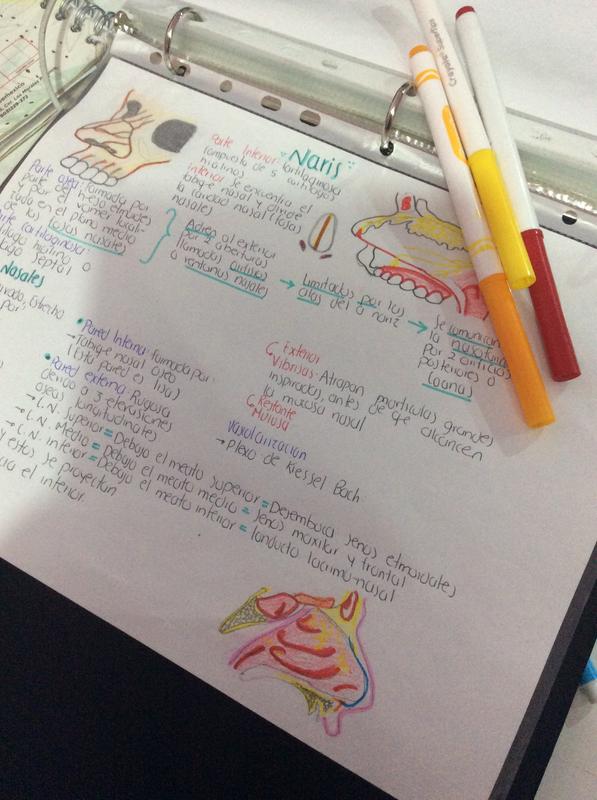 Naris
Parte Inferior: Cartilaginosa
compuesta de 5 cartílagos
hialinos
Inferior: Se encuentra el
tabique nasal y divide
la cavidad nasal (fosas
nasales)
Parte ósea: formada por
parte del hueso etmoides
y por el vomer locali-
zado en el plano medio
de las fosas nasales
Parte cartilaginosa
hialino o
septal
Abren al exterior
por 2 aberturas
llamados orificios
o ventanas nasales
→ Limitados por las
alas de la nariz
→ Se comunican
la nasofaringe
por 2 orificios
posteriores o
Coanas
Nasales
por:
• Pared Interna: formada por:
→ Tabique nasal óseo
(Esta pared es lisa)
• Pared externa: Rugosa
debido a 3 elevaciones
óseas longitudinales
→ C.N. superior = Debajo el meato superior = Desemboca senos etmoidales
→ C.N. Medio = Debajo el meato medio = senos maxilar y frontal
→ C.N. inferior = Debajo el meato inferior = Conducto lacrimo-nasal
y estos se proyectan
el interior.
Exterior
Vibrisas: Atrapan partículas grandes
inspiradas, antes de que alcancen
la mucosa nasal
Restante
Mucosa
Vascularización
→ Plexo de Kiessel Bach
Crayola